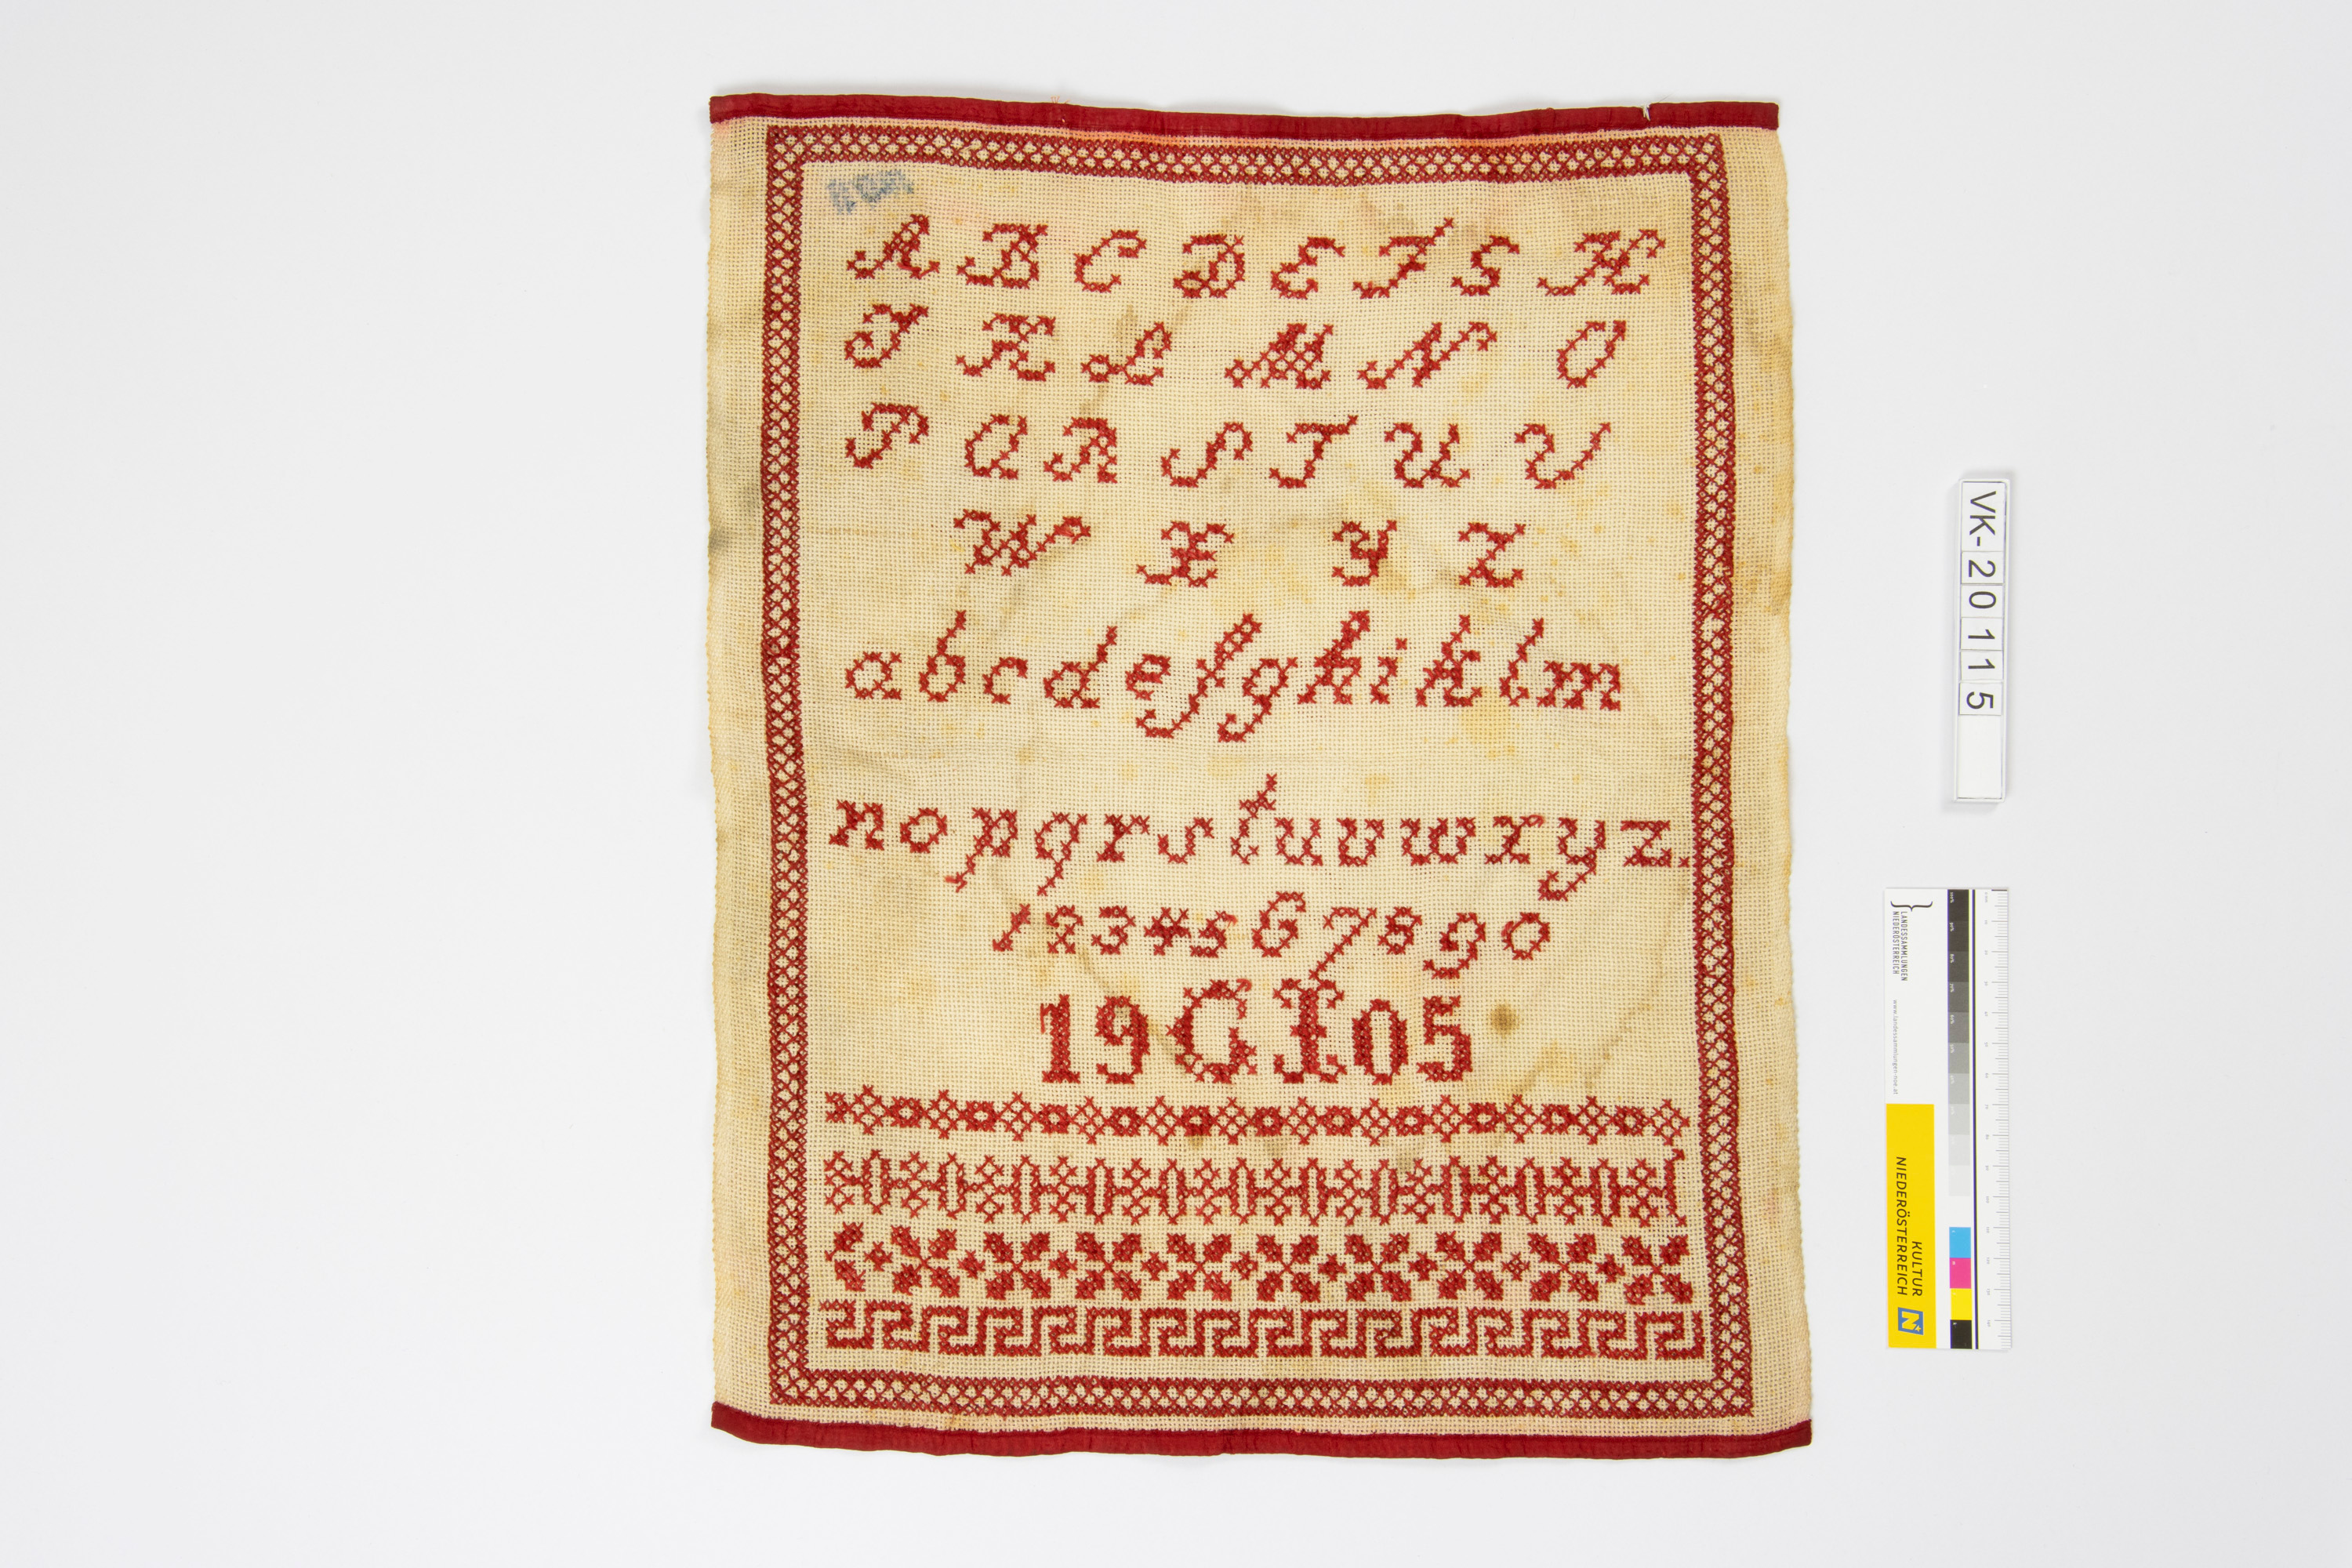 A B C D E F S H
I K L M N O
P Q R S T U V
W X Y Z
a b c d e f g h i k l m
n o p q r s t u v w x y z.
1 2 3 4 5 6 7 8 9 0
19 G I 05
VK-20115
LANDESSAMMLUNGEN
NIEDERÖSTERREICH
www.landessammlungen-noe.at
KULTUR
NIEDERÖSTERREICH
N